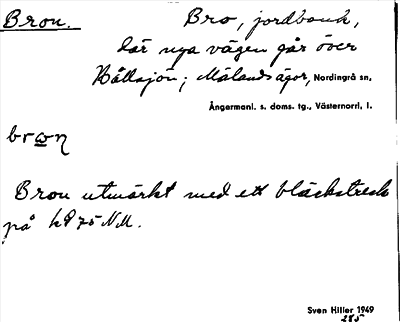 Bron.
Bro, jordbank,
där nya vägen går över
Hållsjön; Mälandsägor, Nordingrå sn,
Ångermanl. s. doms. tg., Västernorrl. l.
brωn
Bron utmärkt med ett bläckstreck
på kP 75 NM.
Sven Hiller 1949
285